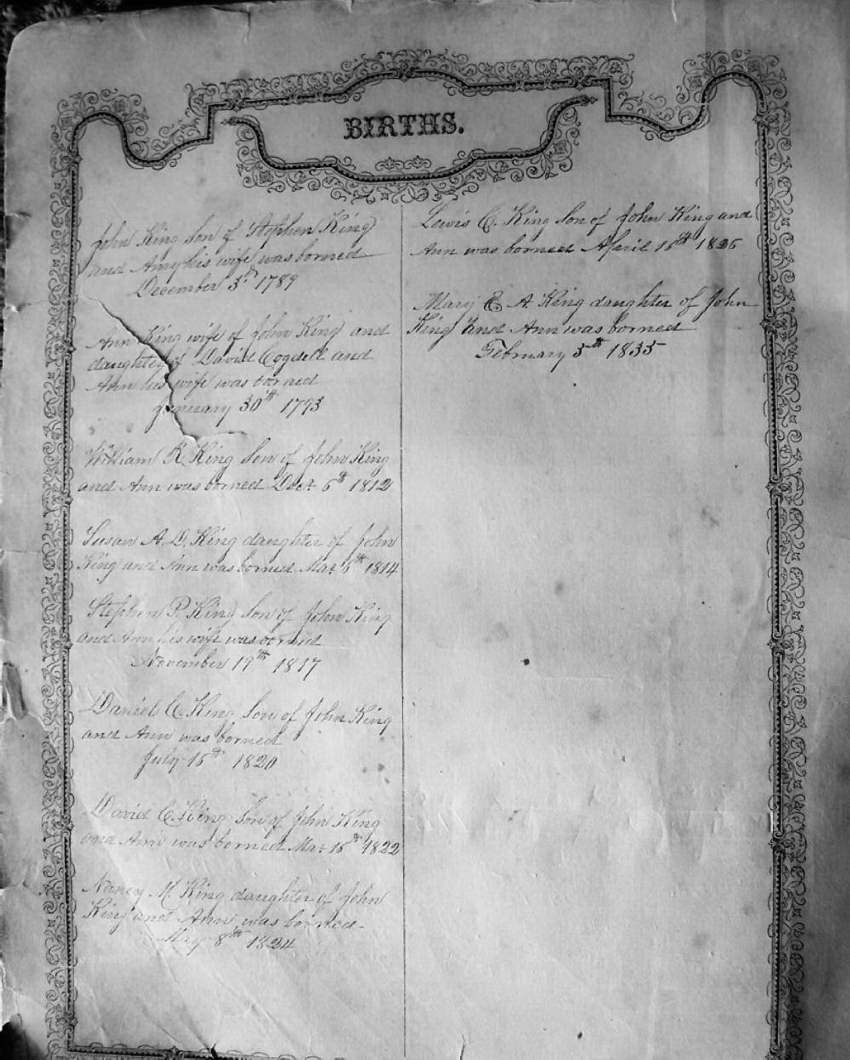 BIRTHS.
John King son of Stephen King
and Amy his wife was borned
December 3rd 1789
Ann King wife of John King and
daughter of David Cogdell and
Ann his wife was borned
January 30th 1793
William R King Son of John King
and Ann was borned Oct 6th 1812
Susan A. D. King daughter of John
King and Ann was borned Mar 6th 1814
Stephen P. King son of John King
and Ann his wife was borned
November 19th 1817
Daniel C. King Son of John King
and Ann was borned
July 15th 1820
David C. King Son of John King
and Ann was borned Mar 18th 1822
Nancy M King daughter of John
King and Ann was borned
May 8th 1824
Lewis C. King Son of John King and
Ann was borned April 15th
Mary E. A. King daughter of John
King and Ann was borned
February 5th 1835